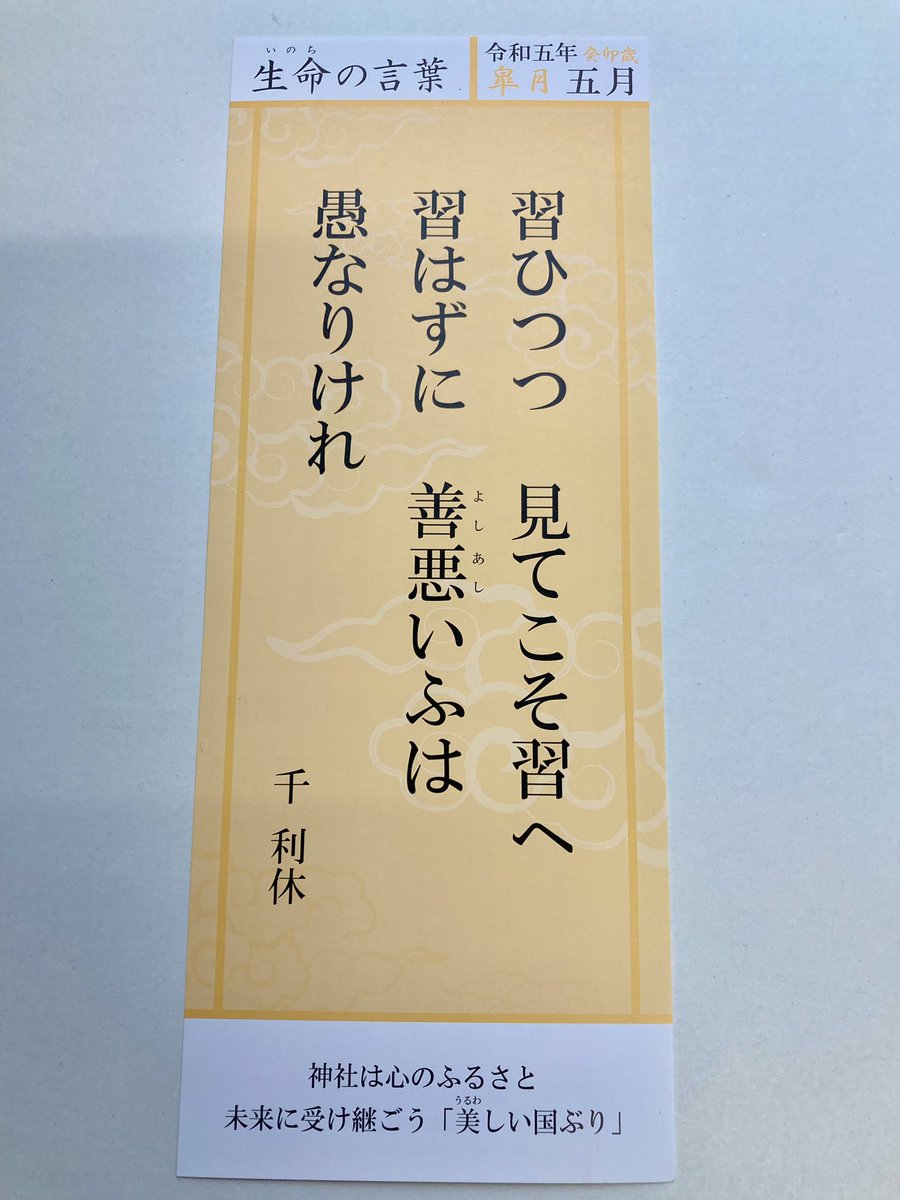 いのち
生命の言葉
令和五年 癸卯歳
皐月 五月
習ひつつ 見てこそ習へ
習はずに 善悪いふは
よしあし
愚なりけれ
千 利休
神社は心のふるさと
うるわ
未来に受け継ごう「美しい国ぶり」